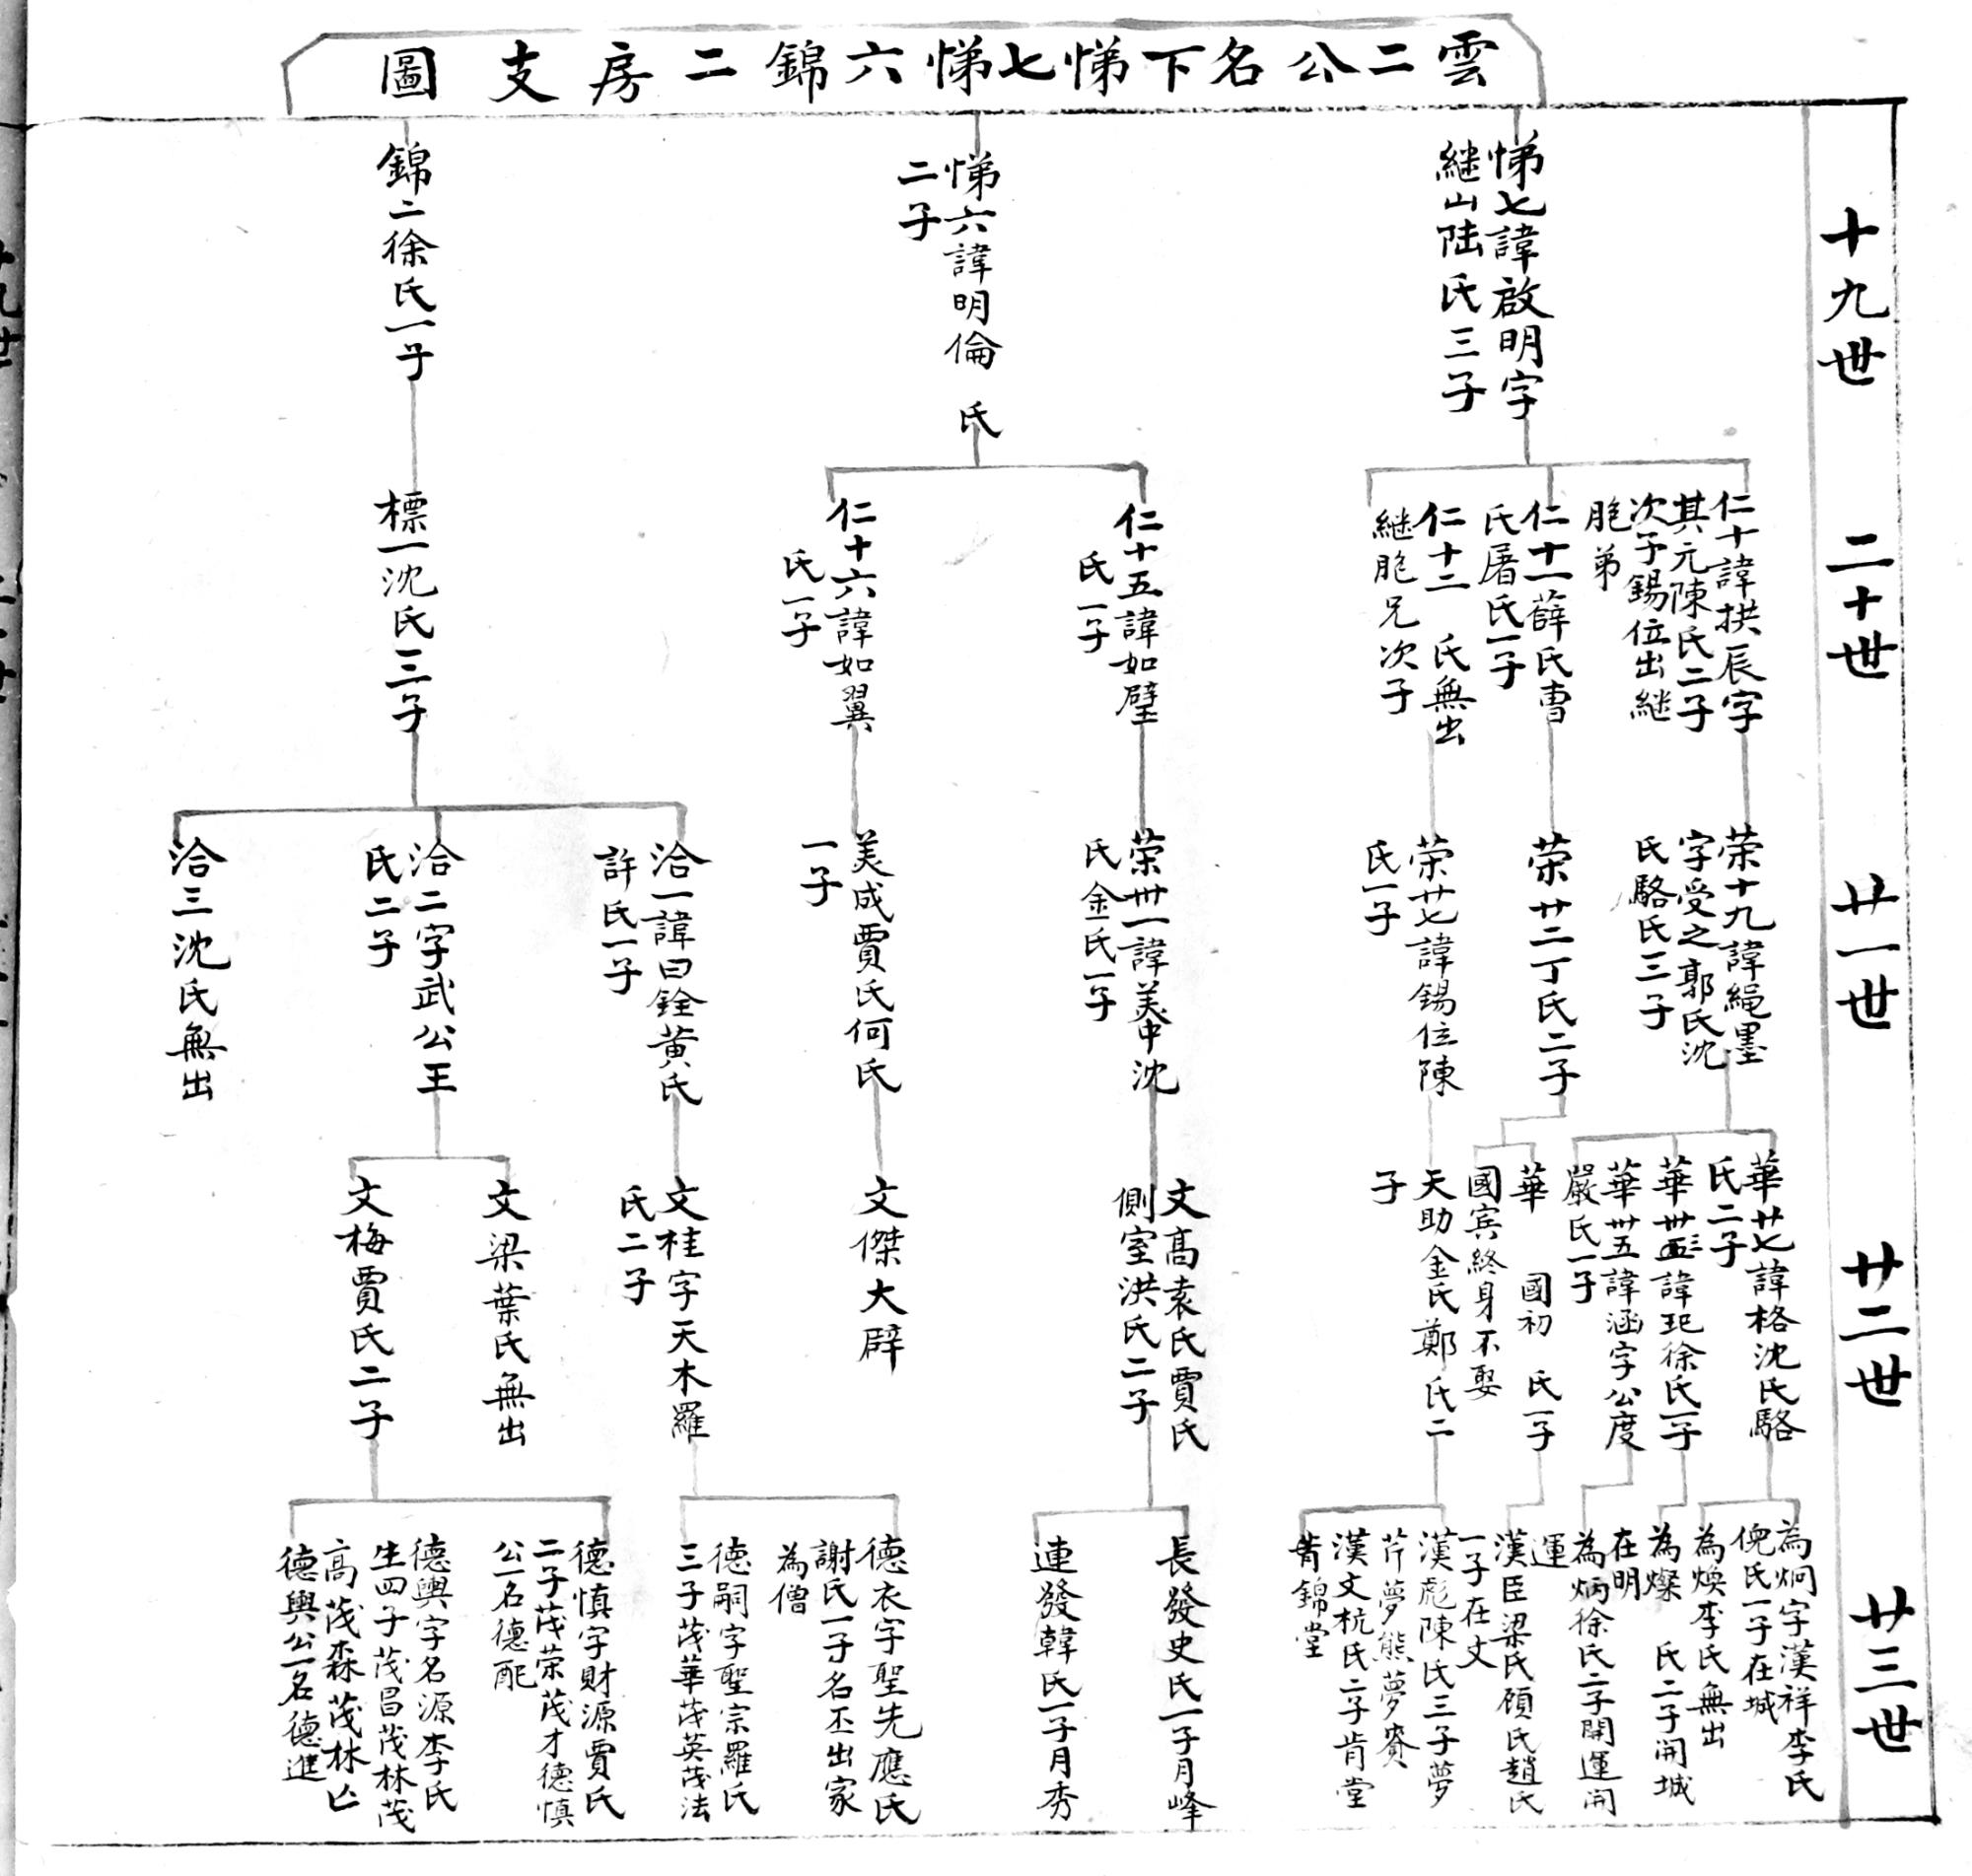 雲二公名下悌七悌六錦二房支圖
十九世
悌七諱啟明字
繼山陆氏三子
悌六諱明倫 氏
二子
錦二徐氏一子
二十世
仁十諱拱辰字
其元陳氏二子
次子錫位出繼
胞弟
仁十一薛氏曹
氏屠氏一子
仁十二 氏無出
继胞兄次子
仁十五諱如璧
氏一子
仁十六諱如翼
氏一子
標一沈氏三子
廿一世
荣十九諱繩墨
字受之郭氏沈
氏駱氏三子
荣廿二丁氏二子
荣廿七諱錫位陳
氏一子
荣卅一諱美中沈
氏金氏一子
美成賈氏何氏
一子
洽一諱曰銓黄氏
許氏一子
洽二字武公王
氏二子
洽三沈氏無出
廿二世
華廿七諱格沈氏駱
氏二子
華卅三諱玘徐氏一子
華卅五諱涵字公度
嚴氏一子
華 國初 氏一子
國宾終身不娶
天助金氏鄭氏二
子
文高袁氏賈氏
側室洪氏二子
文傑大辟
文桂字天木羅
氏二子
文梁葉氏無出
文梅賈氏二子
廿三世
為炯字漢祥李氏
倪氏一子在城
為焕李氏無出
為燦 氏二子開城
在明
為炳徐氏二子開運開
運
漢臣梁氏顾氏趙氏
一子在文
漢彪陳氏三子夢
芹夢熊夢賚
漢文杭氏二子肯堂
肯錦堂
長發史氏一子月峰
連發韓氏一子月秀
德衣字聖先應氏
謝氏一子名丕出家
為僧
德嗣字聖宗羅氏
三子茂華茂英茂法
德慎字財源賈氏
二子茂荣茂才德慎
公一名德配
德興字名源李氏
生四子茂昌茂林茂
高茂森茂林亡
德興公一名德進